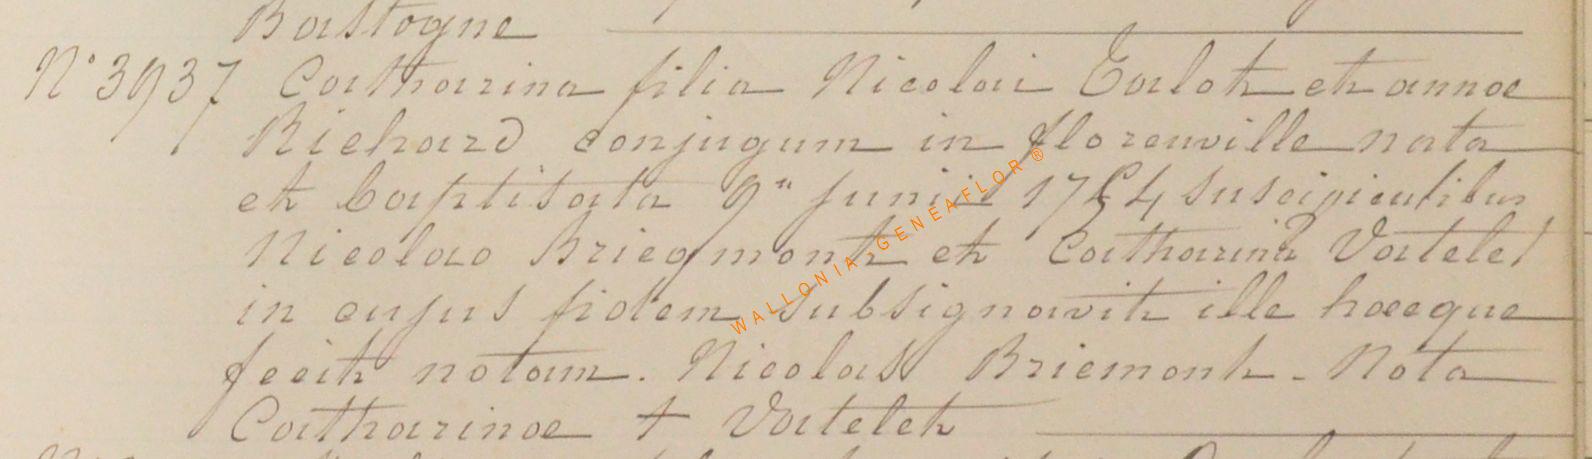 Bastogne
N° 3937 Catharina filia Nicolai Talot et annae
Richard conjugum in florenville nata
et baptisata 9a junii 1754 suscipientibus
Nicolao Briegmont et Catharina Vatelet
in cujus fidem subsignavit ille haecque
fecit notam. Nicolas Briemont - Nota
Catharinae + Vatelet
WALLONIA GENEAFLOR ®